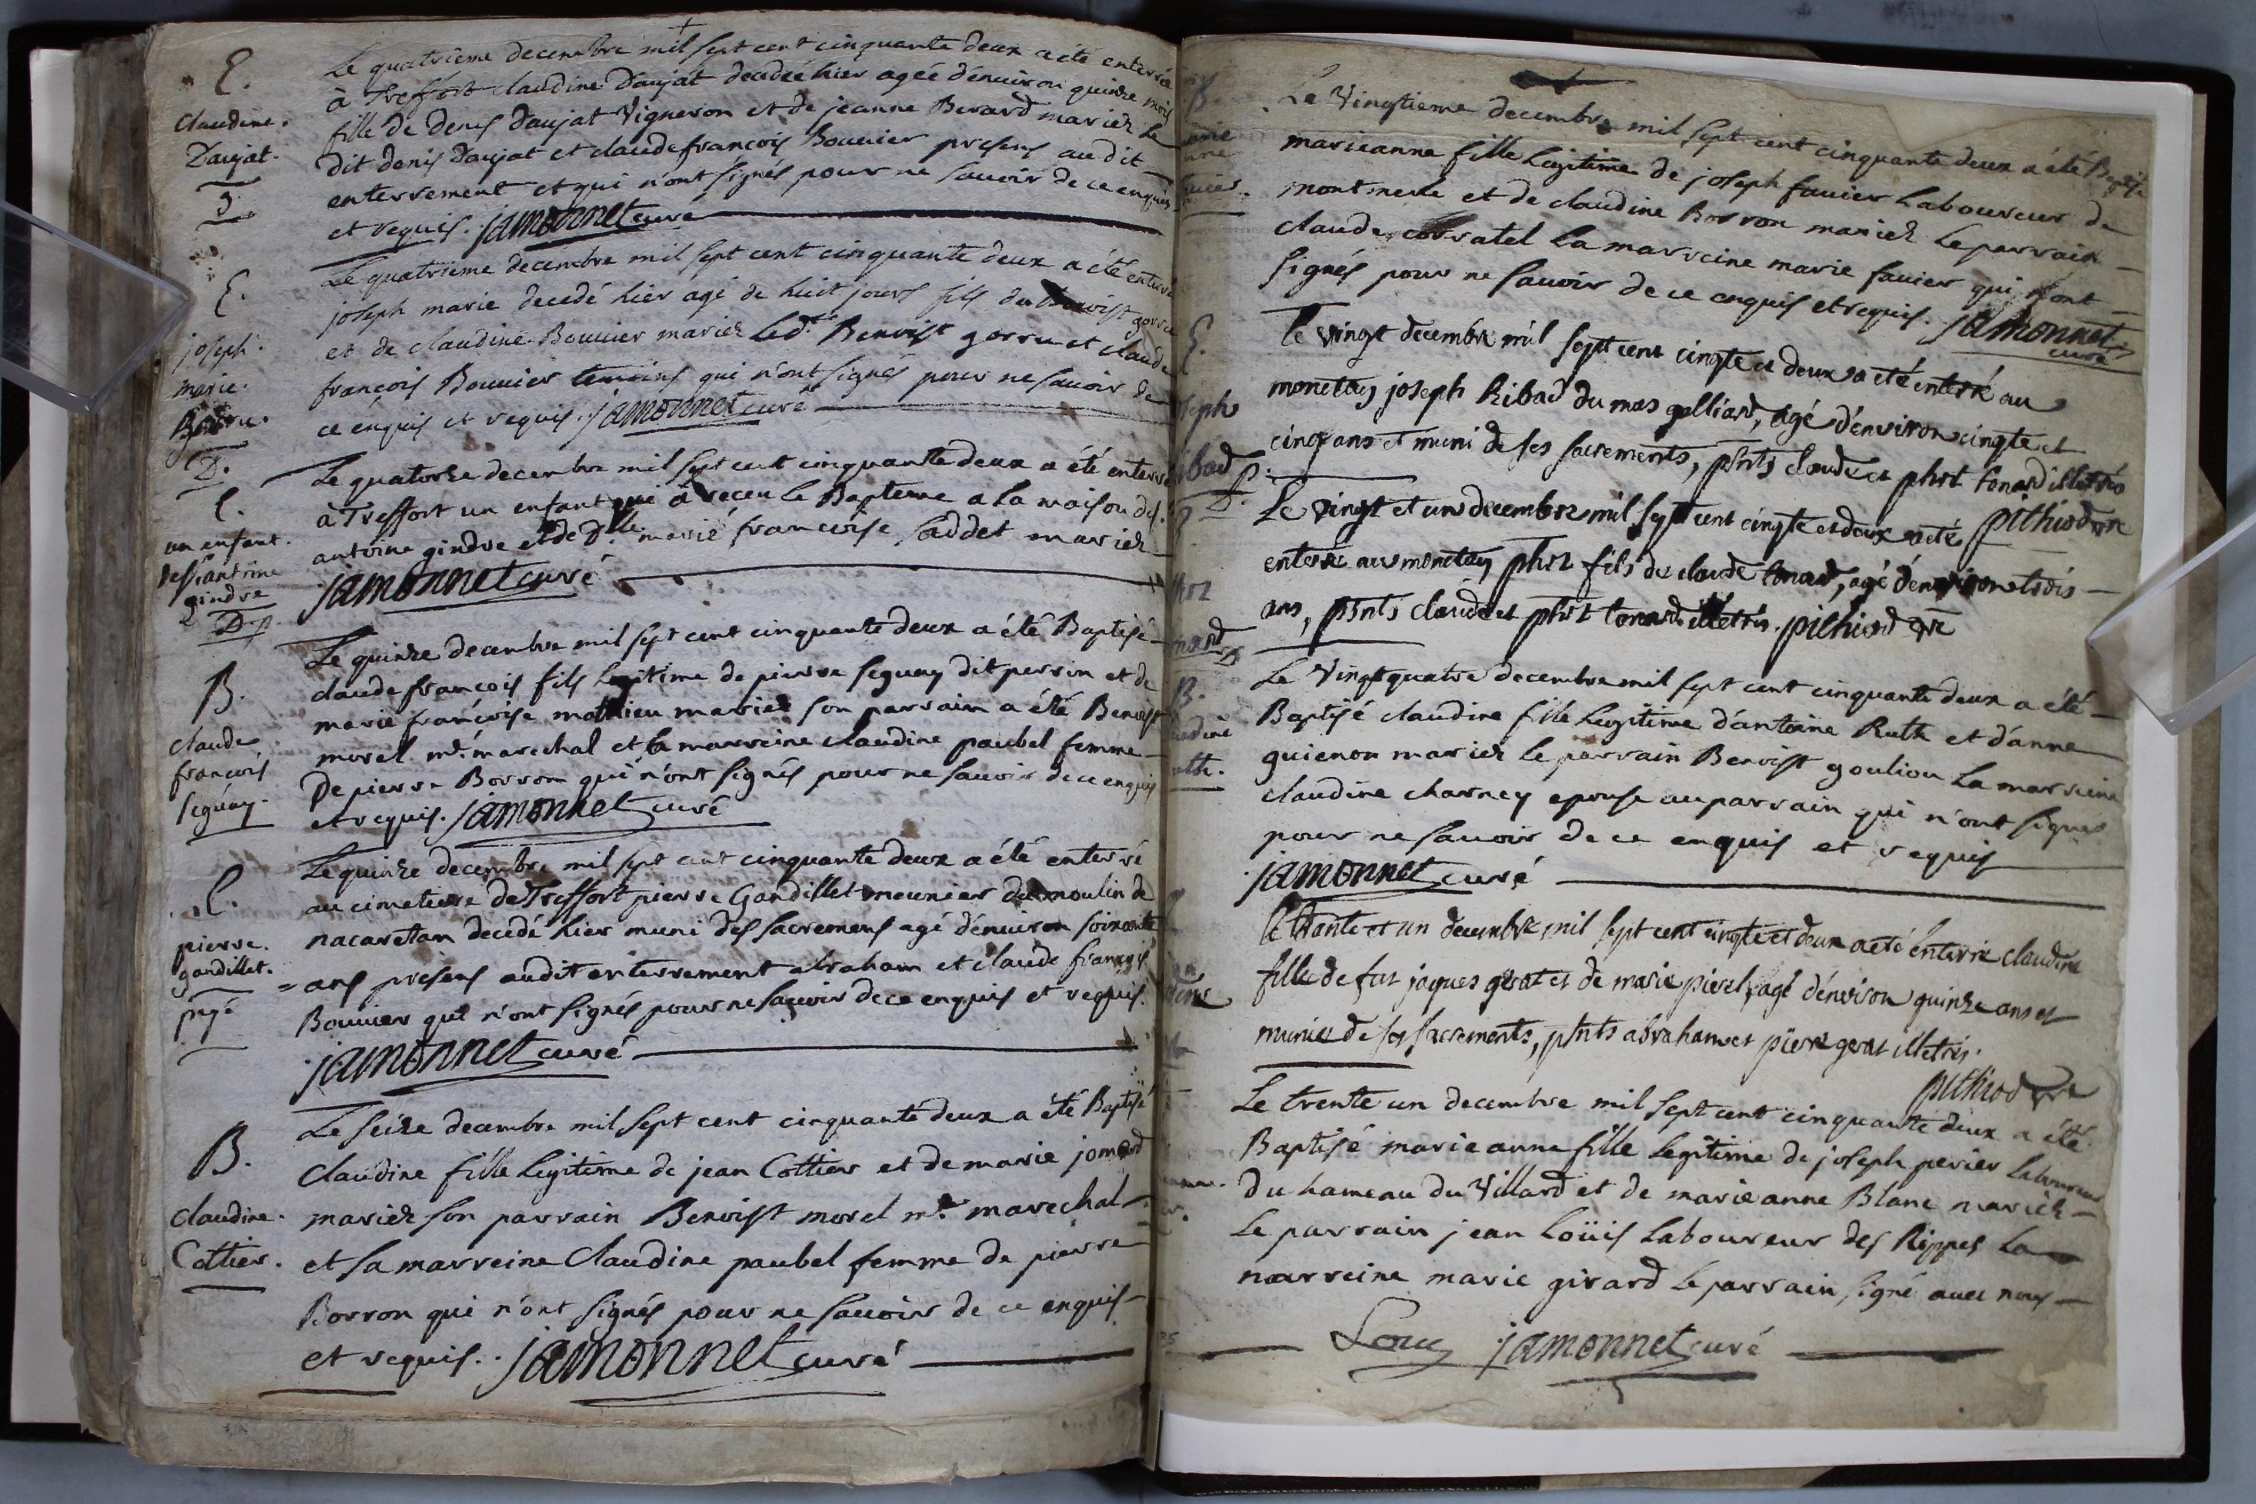 E.
Claudine.
Daujat.
D.
Le quatrième decembre mil sept cent cinquante deux a été enterrée
à Treffort claudine Daujat decedeé hier ageé d'enuiron quinze mois
fille de denis Daujat Vigneron et de jeanne Berard mariez le
dit denis Daujat et claude françois Bouuier presens au dit
enterrement et qui n'ont signés pour ne sauoir de ce enquis
et requis. jamonnet curé
E.
joseph.
marie.
D.
Le quatrième decembre mil sept cent cinquante deux a été enterré
joseph marie decedé hier agé de huit jours fils de Benoist gorru
et de claudine Bouuier mariez led.t Benoist gorru et claude
françois Bouuier temoins qui n'ont signés pour ne sauoir de
ce enquis et requis. jamonnet curé
E.
un enfant.
de s.r antoine
gindre
D. p.
Le quatorze decembre mil sept cent cinquante deux a été enterré
à Treffort un enfant qui à receu le Bapteme a la maison de s.r
antoine gindre et de D.lle marie françoise Saddet mariez
jamonnet curé
B.
claude
françois
seguay.
Le quinze decembre mil sept cent cinquante deux a été Baptisé
claude françois fils legitime de pierre seguay dit perrin et de
marie françoise mathieu mariez son parrain a été Benoist
morel m.e marechal et la marreine claudine paubel femme
De pierre Borron qui n'ont signés pour ne sauoir de ce enquis
et requis. jamonnet curé
E.
pierre.
gandillet.
Le quinze decembre mil sept cent cinquante deux a été enterré
au cimetiere de Treffort pierre Gandillet meunier du moulin de
nacaretan decedé hier muni des sacremens agé d'enuiron soixante
= ans presens audit enterrement abraham et claude françois
Bouuier qui n'ont signés pour ne sauoir de ce enquis et requis.
jamonnet curé
B.
Claudine.
Cottier.
Le seize decembre mil sept cent cinquante deux a été Baptisé
Claudine fille legitime de jean Cottier et de marie jomard
mariez son parrain Benoist morel m.e marechal
et sa marreine Claudine paubel femme de pierre
Borron qui n'ont signés pour ne sauoir de ce enquis
et requis. jamonnet curé
B.
Le Vingtieme decembre mil sept cent cinquante deux a été Baptisé
marieanne fille legitime de joseph fauier laboureur de
montmerle et de claudine Borron mariez le parrain
claude corratel la marreine marie fauier qui n'ont
signés pour ne sauoir de ce enquis et requis. jamonnet
curé
E.
seph
ibad
D.
le vingt decembre mil sept cent cinqte et deux a eté enterré au
monetay joseph Ribad du mas galliard, agé d'environ cinqte et
cinq ans et muni de ses sacrements, pṡnts claude et phrt tonard illetrés
pithiod
nard
Le vingt et un decembre mil sept cent cinqte et deux a eté
enterré au monetay phrt fils de claude tonard, agé d'environ trois
ans, pṡnts claude et phrt tonard illetrés. pithiod
B.
Le Vingt quatre decembre mil sept cent cinquante deux a été
Baptisé claudine fille legitime d'antoine Ruth et d'anne
guienon mariez le parrain Benoist goulion la marreine
claudine charney epouse au parrain qui n'ont signés
pour ne sauoir de ce enquis et requis
jamonnet curé
le trante et un decembre mil sept cent cinqte et deux a eté enterrée claudine
fille de fut jaques gerat et de marie pirel, agé d'environ quinze ans et
munie de ses sacrements, pṡnts abraham et pierre gerat illetrés.
pithiod
Le trente un decembre mil sept cent cinquante deux a été
Baptisé marieanne fille legitime de joseph perier laboureur
du hameau du Villard et de marieanne Blanc mariez
Le parrain jean Loüis laboureur des Rippes la
marreine marie girard le parrain signé auec nous
Louy jamonnet curé